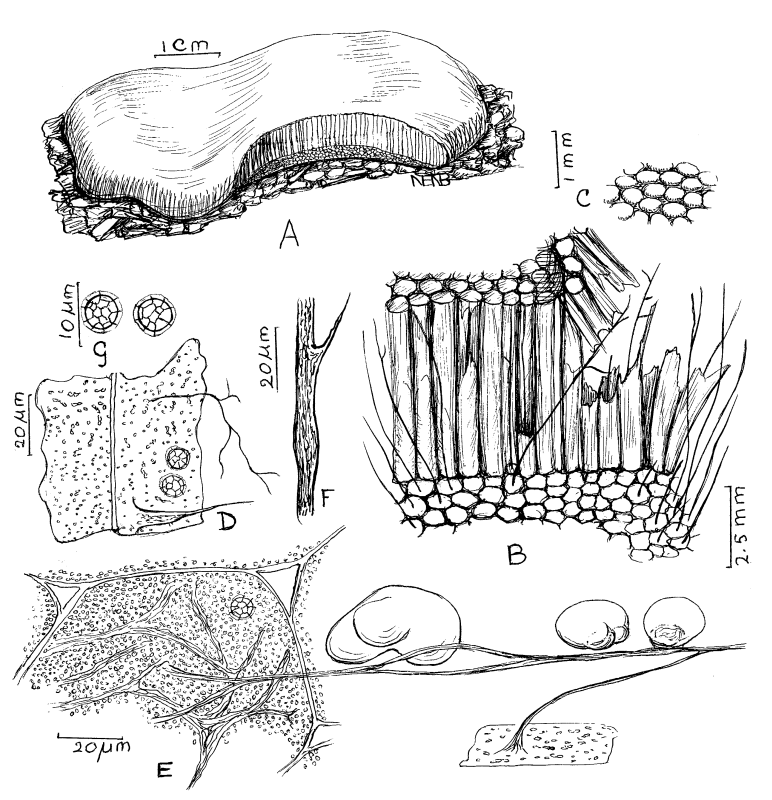 1 cm
NENB
A
1 mm
C
10 µm
G
20 µm
20 µm
D
F
B
2.5 mm
20 µm
E